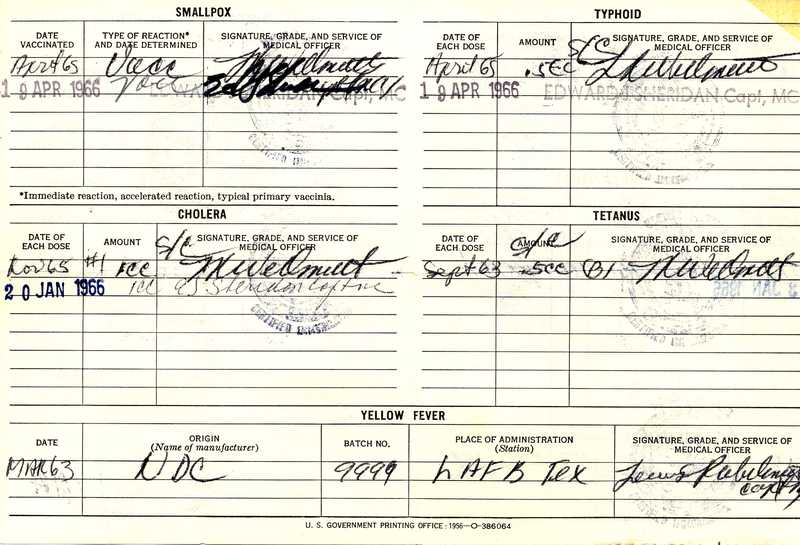 SMALLPOX
DATE VACCINATED
TYPE OF REACTION* AND DATE DETERMINED
SIGNATURE, GRADE, AND SERVICE OF MEDICAL OFFICER
Apr 65 Vacc
19 APR 1966 Vacc EDWARD J SHERIDAN Capt, MC
*Immediate reaction, accelerated reaction, typical primary vaccinia.
TYPHOID
DATE OF EACH DOSE
AMOUNT
SIGNATURE, GRADE, AND SERVICE OF MEDICAL OFFICER
S/C
April 65 .5CC
19 APR 1966 EDWARD J SHERIDAN Capt, MC
CHOLERA
DATE OF EACH DOSE
AMOUNT
S/C
SIGNATURE, GRADE, AND SERVICE OF MEDICAL OFFICER
Nov 65 #1 1CC
20 JAN 1966 1cc EJ Sheridan Capt mc
CERTIFIED
TETANUS
DATE OF EACH DOSE
AMOUNT
S/C
SIGNATURE, GRADE, AND SERVICE OF MEDICAL OFFICER
Sept 63 .5CC (B)
YELLOW FEVER
DATE
ORIGIN
(Name of manufacturer)
BATCH NO.
PLACE OF ADMINISTRATION
(Station)
SIGNATURE, GRADE, AND SERVICE OF MEDICAL OFFICER
MAR 63 NDC 9999 LAFB Tex
Capt
U. S. GOVERNMENT PRINTING OFFICE : 1956—O-386064